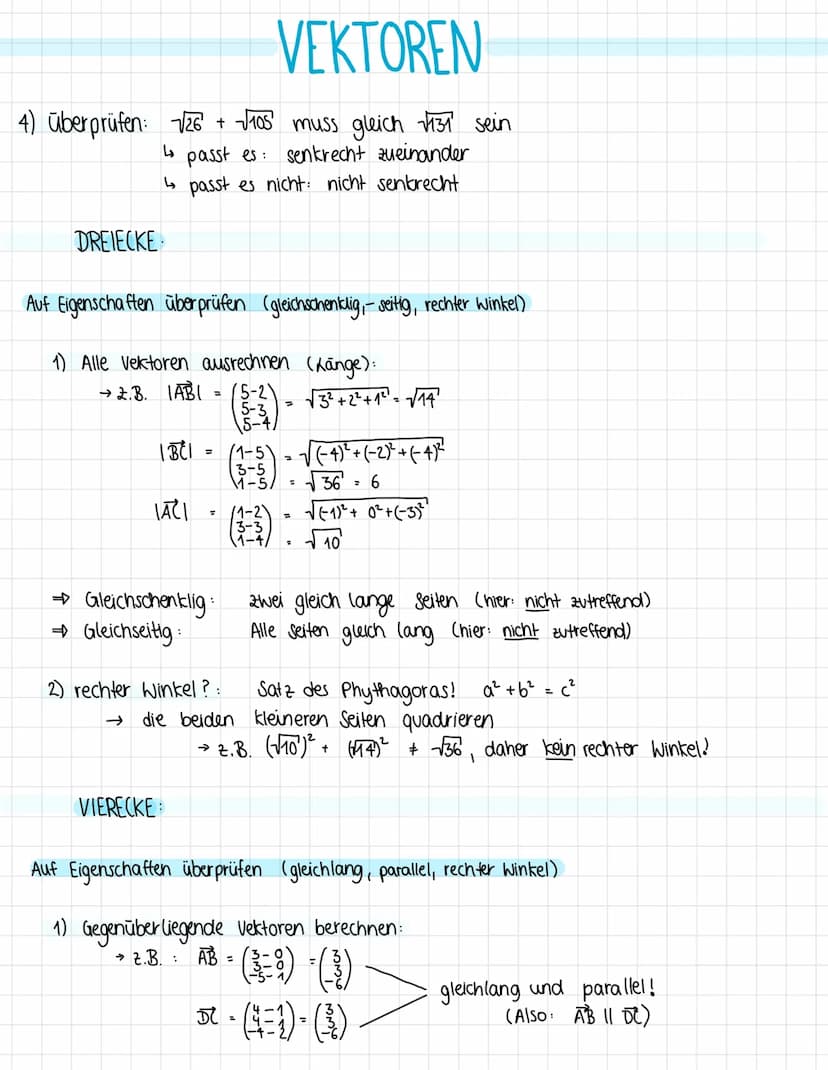 VEKTOREN
4) überprüfen: √26 + √105 muss gleich √131 sein
↳ passt es: senkrecht zueinander
↳ passt es nicht: nicht senkrecht
DREIECKE:
Auf Eigenschaften überprüfen (gleichschenklig,-seitig, rechter Winkel)
1) Alle Vektoren ausrechnen (Länge):
→ z.B. |AB| = (5-2 5-3 5-4) = √3² + 2² + 1² = √14
|BC| = (1-5 3-5 1-5) = √(-4)² + (-2)² + (-4)²
= √36 = 6
|AC| = (1-2 3-3 1-4) = √(-1)² + 0² + (-3)²
= √10
⇒ Gleichschenklig: zwei gleich lange Seiten (hier: nicht zutreffend)
⇒ Gleichseitig: Alle Seiten gleich lang (hier: nicht zutreffend)
2) rechter Winkel?: Satz des Phythagoras! a² + b² = c²
→ die beiden kleineren Seiten quadrieren
→ z.B. (√10)² + (√14)² ≠ √36, daher kein rechter Winkel!
VIERECKE:
Auf Eigenschaften überprüfen (gleichlang, parallel, rechter Winkel)
1) Gegenüberliegende Vektoren berechnen:
→ z.B.: AB = (3-0 3-0 -5-1) = (3 3 -6)
gleichlang und parallel!
DC = (4-1 4-1 -4-2) = (3 3 -6)
(Also: AB || DC)